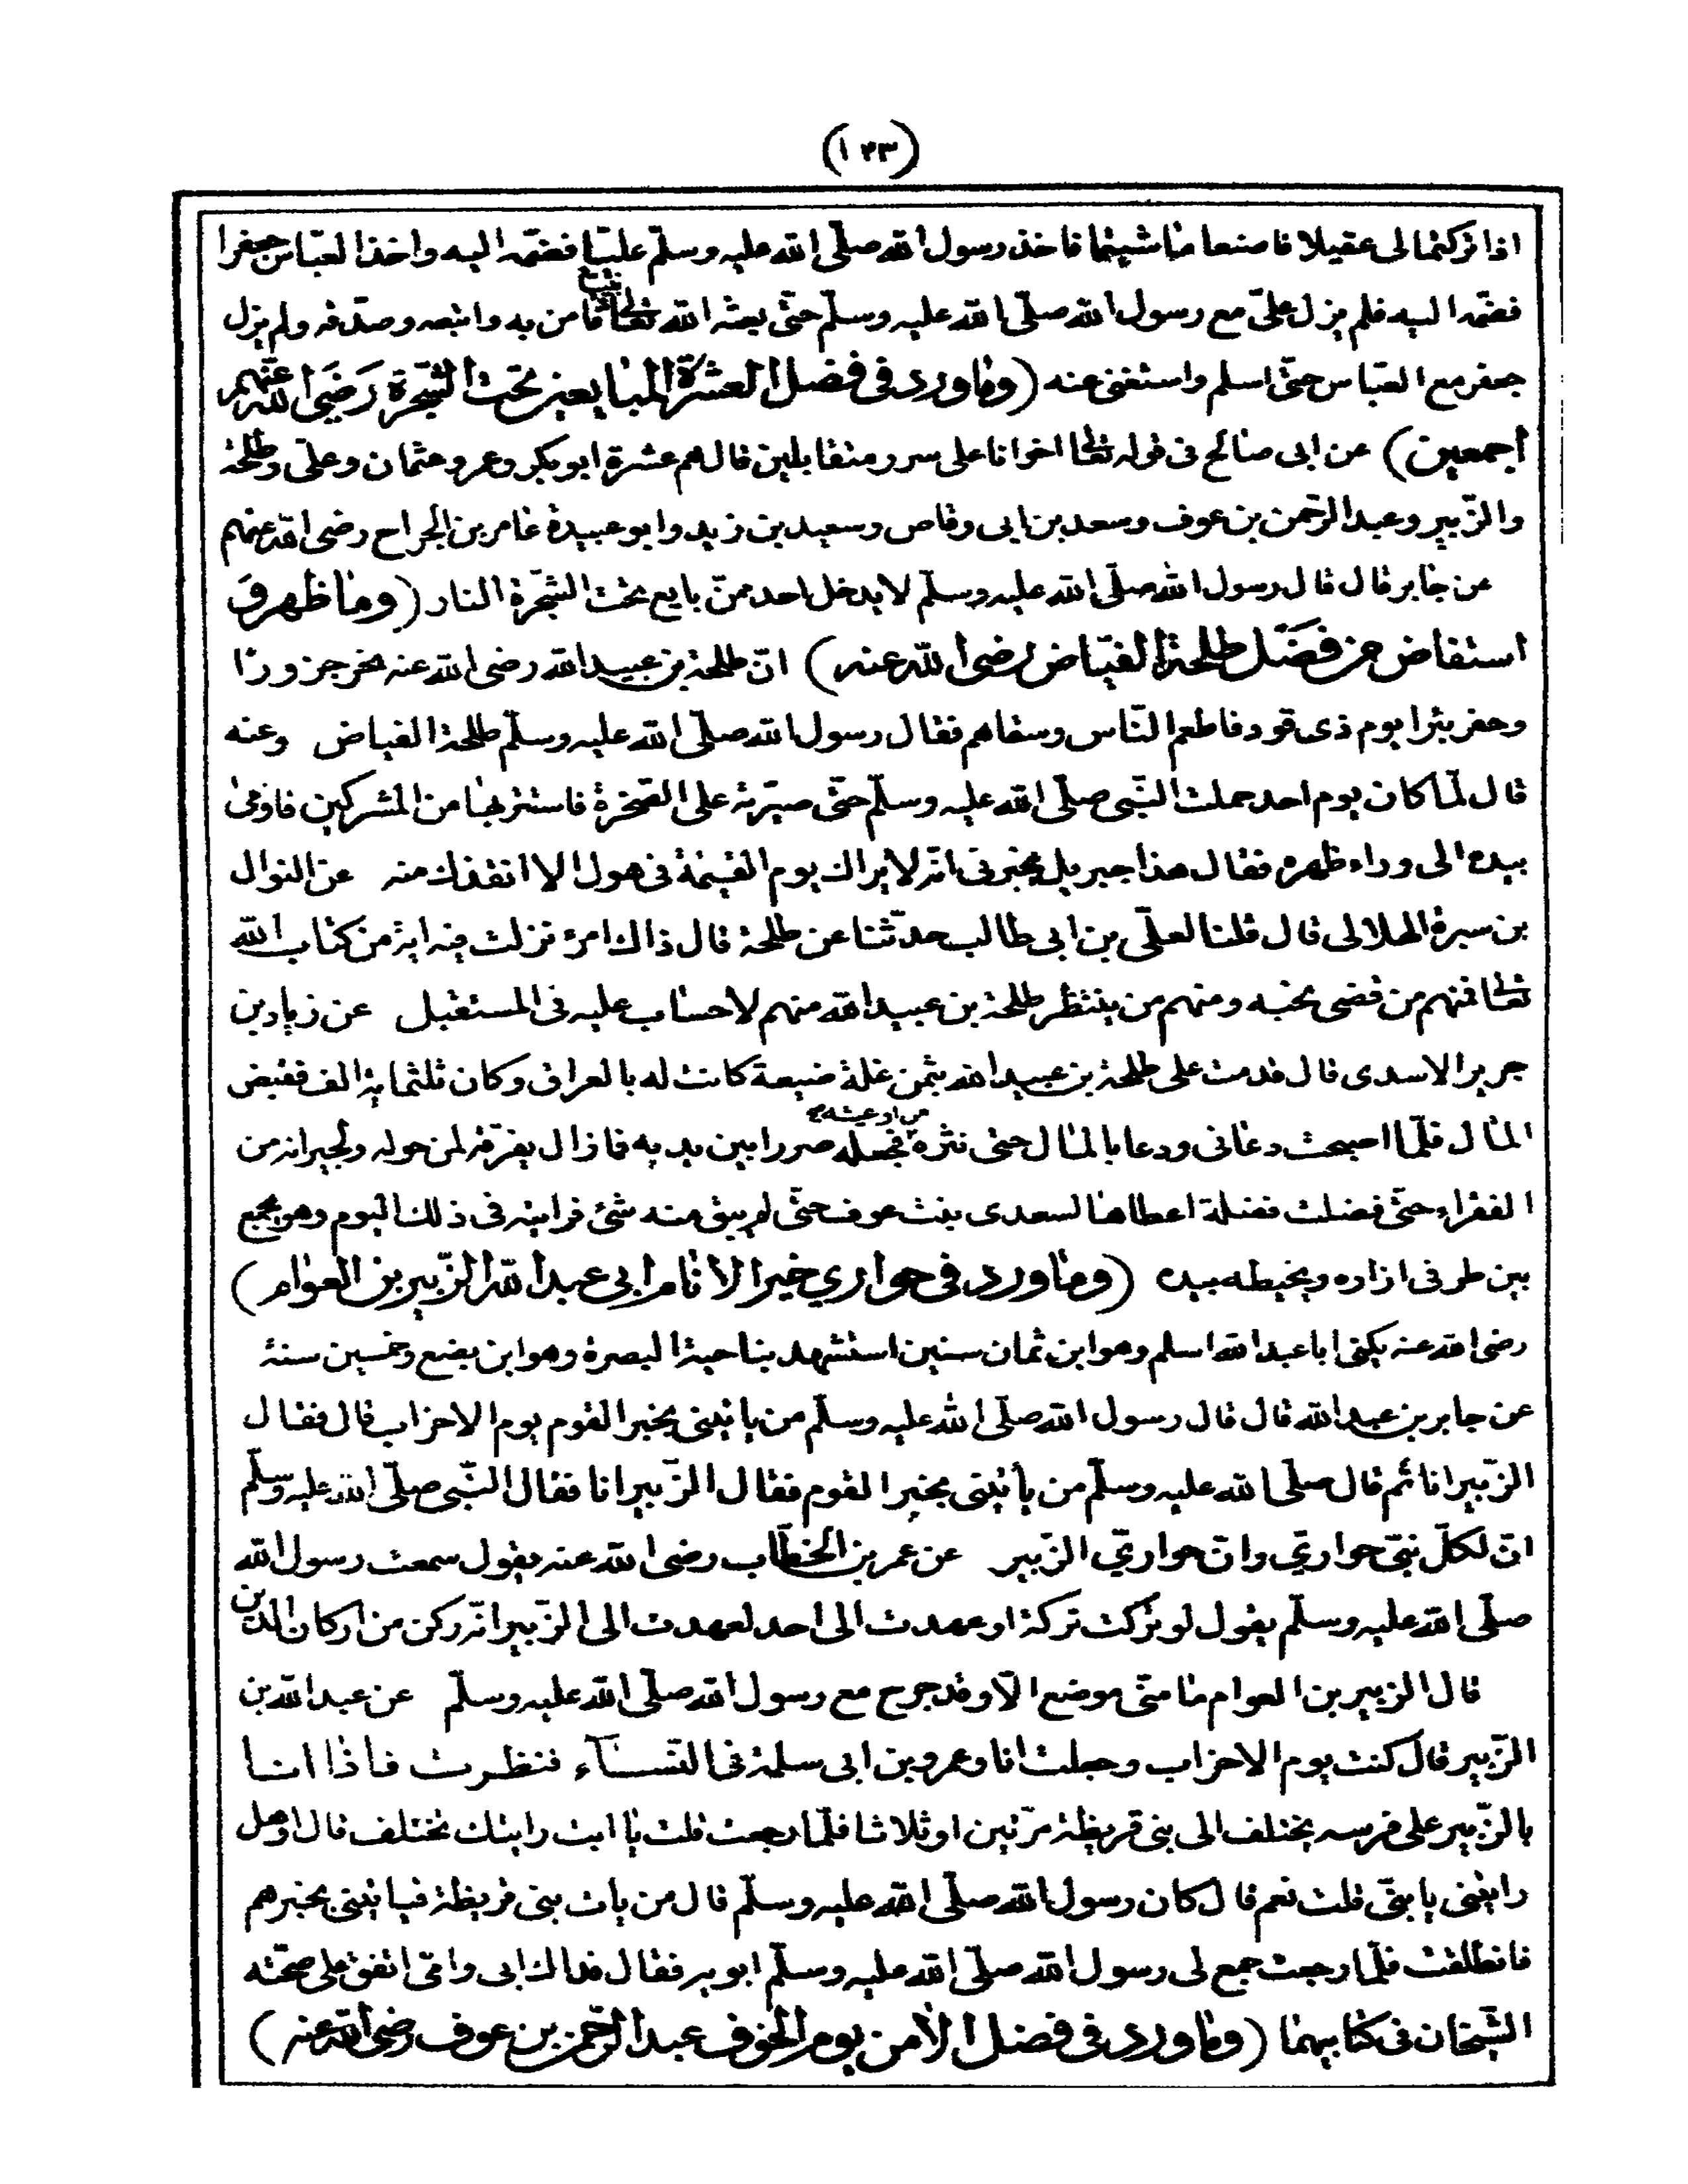 (١٢٣)
اذا تركتما لى عقيلا فاصنعا ماشيتما فاخذ رسول الله صلّى الله عليه وسلّم عليّا فضمّه اليه واخذ العبّاس جعفرا
فضمّه اليه فلم يزل علىّ مع رسول الله صلّى الله عليه وسلّم حتّى بعثه الله تعالى نبيا فامن به واتبعه وصدّقه ولم يزل
جعفر مع العبّاس حتّى اسلم واستغنى عنه (وما ورد فى فضل العشرة المبايعين تحت الشجرة رَضَىَ الله عنهم
أجمعين) عن ابى صالح فى قوله تعالى اخوانا على سرر متقابلين قال هم عشرة ابو بكر وعمر وعثمان وعلى وطلحة
والزّبير وعبد الرّحمن بن عوف وسعد بن ابى وقاص وسعيد بن زيد وابو عبيدة عامر بن الجراح رضى الله عنهم
عن جابر قال قال رسول الله صلّى الله عليه وسلّم لا يدخل احد ممّن بايع تحت الشّجرة النار (وما ظهر و
استفاض من فضل طلحة الفيّاض رضى الله عنه) انّ طلحة بن عبيد الله رضى الله عنه نحر جزورا
وحفر بئرا يوم ذى قرد فاطعم النّاس وسقاهم فقال رسول الله صلّى الله عليه وسلّم طلحة الفياض وعنه
قال لمّا كان يوم احد حملت النّبى صلّى الله عليه وسلّم حتّى صيّرته على الصّخرة فاستتر بها من المشركين فاومى
بيده الى وراء ظهره فقال هذا جبريل يخبرنى انّه لا يراك يوم القيمة فى هول الا انقذك منه عن النوال
بن سبرة الهلالى قال قلنا لعلّى بن ابى طالب حدّثنا عن طلحة قال ذاك امرء نزلت فيه اية من كتاب الله
تعالى فمنهم من قضى نحبه ومنهم من ينتظر طلحة بن عبيد الله منهم لا حساب عليه فى المستقبل عن زياد بن
جرير الاسدى قال قدمت على طلحة بن عبيد الله بثمن غلة ضيعة كانت له بالعراق وكان ثلثماية الف فقبض
المال فلمّا اصبحت دعانى ودعا بالمال حتى نثره فجعله صررا بين يديه فما زال يفرّقه لمن حوله ولجيرانه من
الفقراء حتّى فضلت فضلة اعطاها لسعدى بنت عوف حتّى لم يبق منه شئ فرايته فى ذلك اليوم وهو يجمع
بين طرفى ازاره ويخيطه بيده (وما ورد فى حواري خير الانام ابي عبد الله الزّبير بن العوام)
رضى الله عنه يكنى ابا عبد الله اسلم وهو ابن ثمان سنين استشهد بناحية البصرة وهو ابن بضع وخمسين سنة
عن جابر بن عبد الله قال قال رسول الله صلّى الله عليه وسلّم من يأتينى بخبر القوم يوم الاحزاب قال فقال
الزّبير انا ثم قال صلّى الله عليه وسلّم من يأتينى بخبر القوم فقال الزّبير انا فقال النّبى صلّى الله عليه وسلّم
انّ لكلّ نبىّ حواريّ وانّ حواريّي الزّبير عن عمر بن الخطّاب رضى الله عنه يقول سمعت رسول الله
صلّى الله عليه وسلّم يقول لو تركت تركة او عهدت الى احد لعهدت الى الزّبير انّه ركن من اركان الدين
قال الزبير بن العوام ما منّى موضع الّا وقد جرح مع رسول الله صلّى الله عليه وسلّم عن عبد الله بن
الزّبير قال كنت يوم الاحزاب وجعلت انا وعمرو بن ابى سلمة فى النّساء فنظرت فاذا انا
بالزّبير على فرسه يختلف الى بنى قريظة مرّتين او ثلاثا فلمّا رجعت قلت يا ابت رايتك تختلف قال او هل
رايتنى يا بنىّ قلت نعم قال كان رسول الله صلّى الله عليه وسلّم قال من يات بنى قريظة فيأتينى بخبرهم
فانطلقت فلمّا رجعت جمع لى رسول الله صلّى الله عليه وسلّم ابويه فقال فداك ابى وامّى اتفق على صحّته
الشّيخان فى كتابيهما (وما ورد فى فضل الأمن يوم الخوف عبد الرّحمن بن عوف رضى الله عنه)